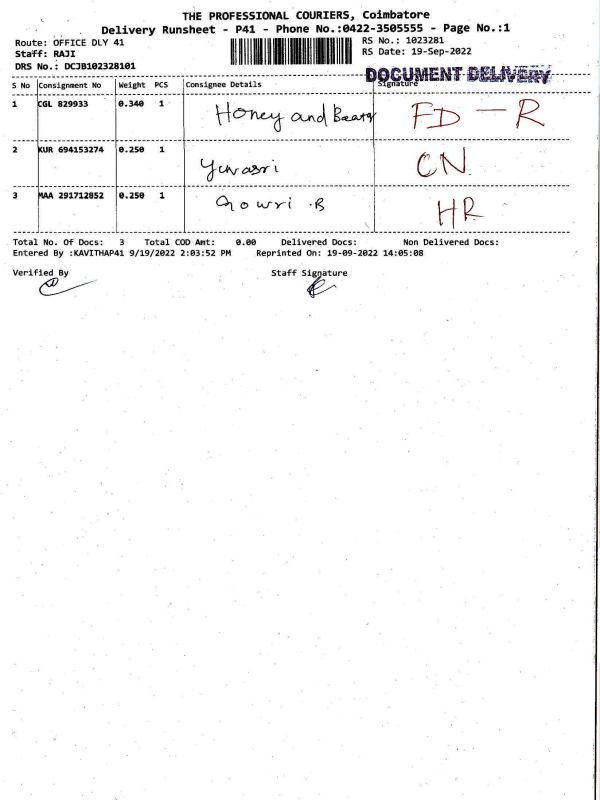 THE PROFESSIONAL COURIERS, Coimbatore
Delivery Runsheet - P41 - Phone No.:0422-3505555 - Page No.:1
Route: OFFICE DLY 41 RS No.: 1023281
Staff: RAJI RS Date: 19-Sep-2022
DRS No.: DCJB102328101
DOCUMENT DELIVERY
S No Consignment No Weight PCS Consignee Details Signature
1 CGL 829933 0.340 1 Honey and FD - R
2 KUR 694153274 0.250 1 Yuvasri CN
3 MAA 291712852 0.250 1 Gowri .B HR
Total No. Of Docs: 3 Total COD Amt: 0.00 Delivered Docs: Non Delivered Docs:
Entered By :KAVITHAP41 9/19/2022 2:03:52 PM Reprinted On: 19-09-2022 14:05:08
Verified By Staff Signature